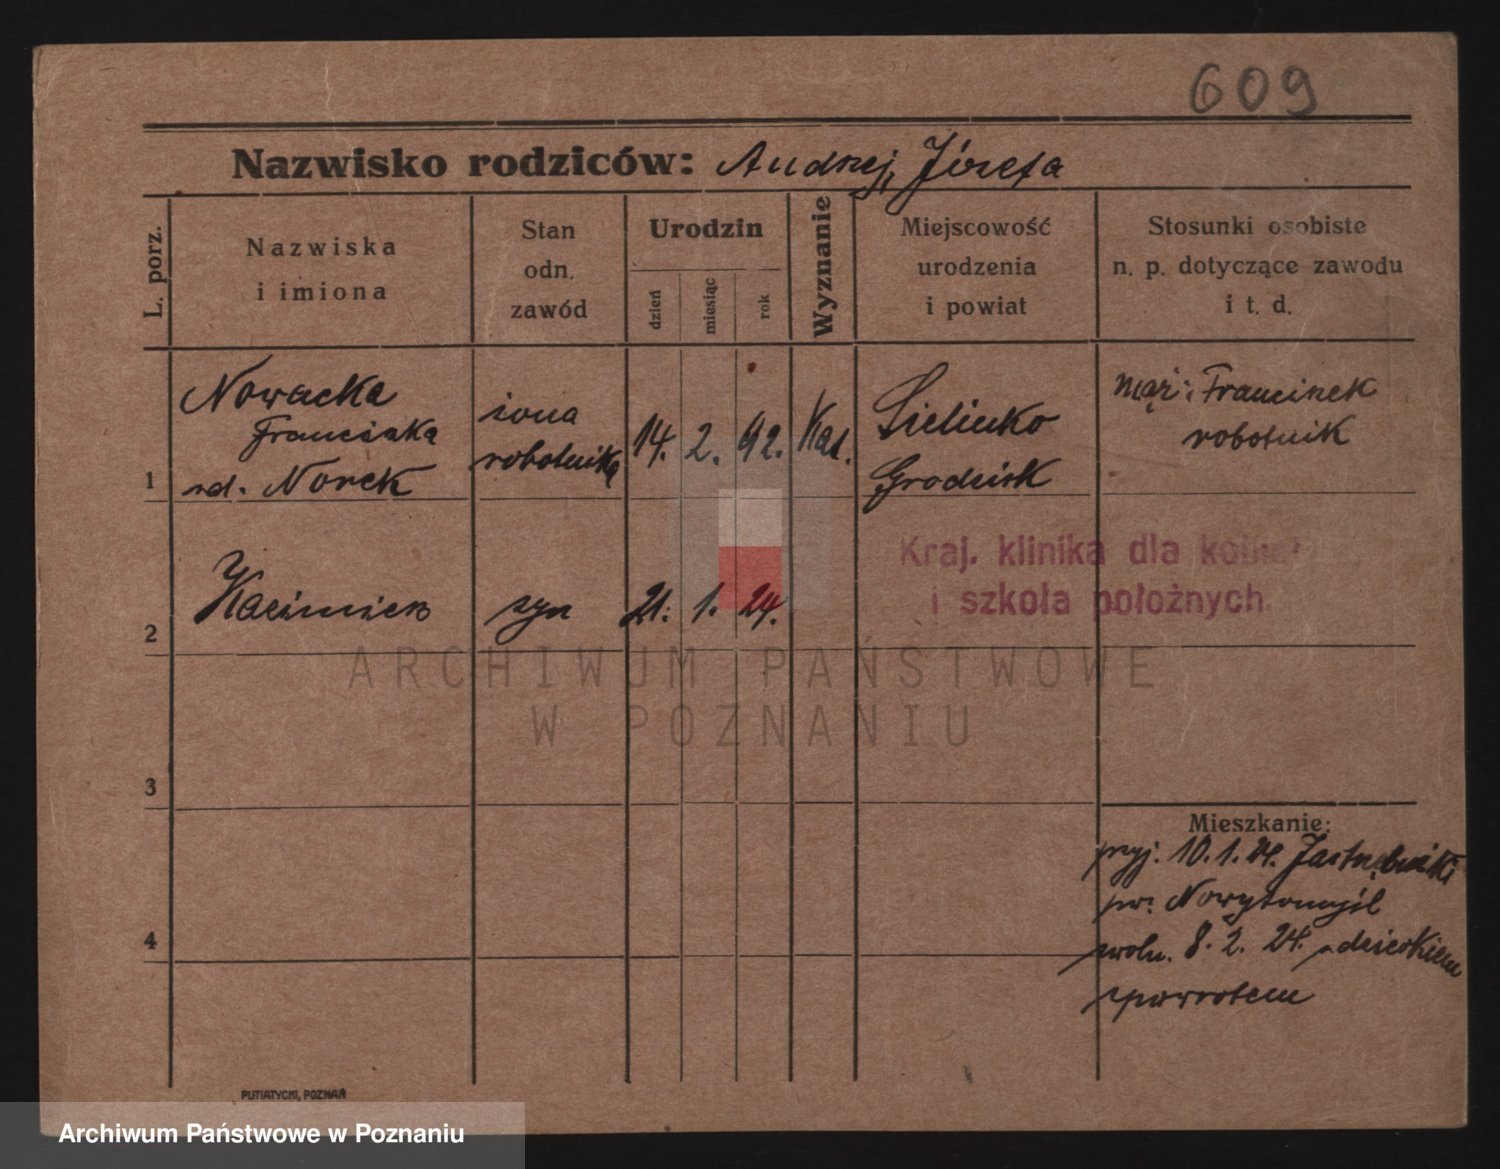 609
Nazwisko rodziców: Andrzej, Józefa
L. porz.
Nazwiska
i imiona
Stan
odn.
zawód
Urodzin
dzień
miesiąc
rok
Wyznanie
Miejscowość
urodzenia
i powiat
Stosunki osobiste
n. p. dotyczące zawodu
i t. d.
1
Nowacka
Franciszka
rd. Norek
żona
robotnika
14. 2. 92.
Kat.
Sielinko
Grodzisk
mąż: Franciszek
robotnik
2
Kazimierz
syn
21. 1. 24.
Kraj. klinika dla kobiet
i szkoła położnych.
ARCHIWUM PAŃSTWOWE
W POZNANIU
3
4
Mieszkanie:
przyj. 10. 1. 24. Jastrzębniki
pw. Nowytomyśl
zwoln. 8. 2. 24. z dzieckiem
zpowrotem
PUTIATYCKI, POZNAŃ
Archiwum Państwowe w Poznaniu